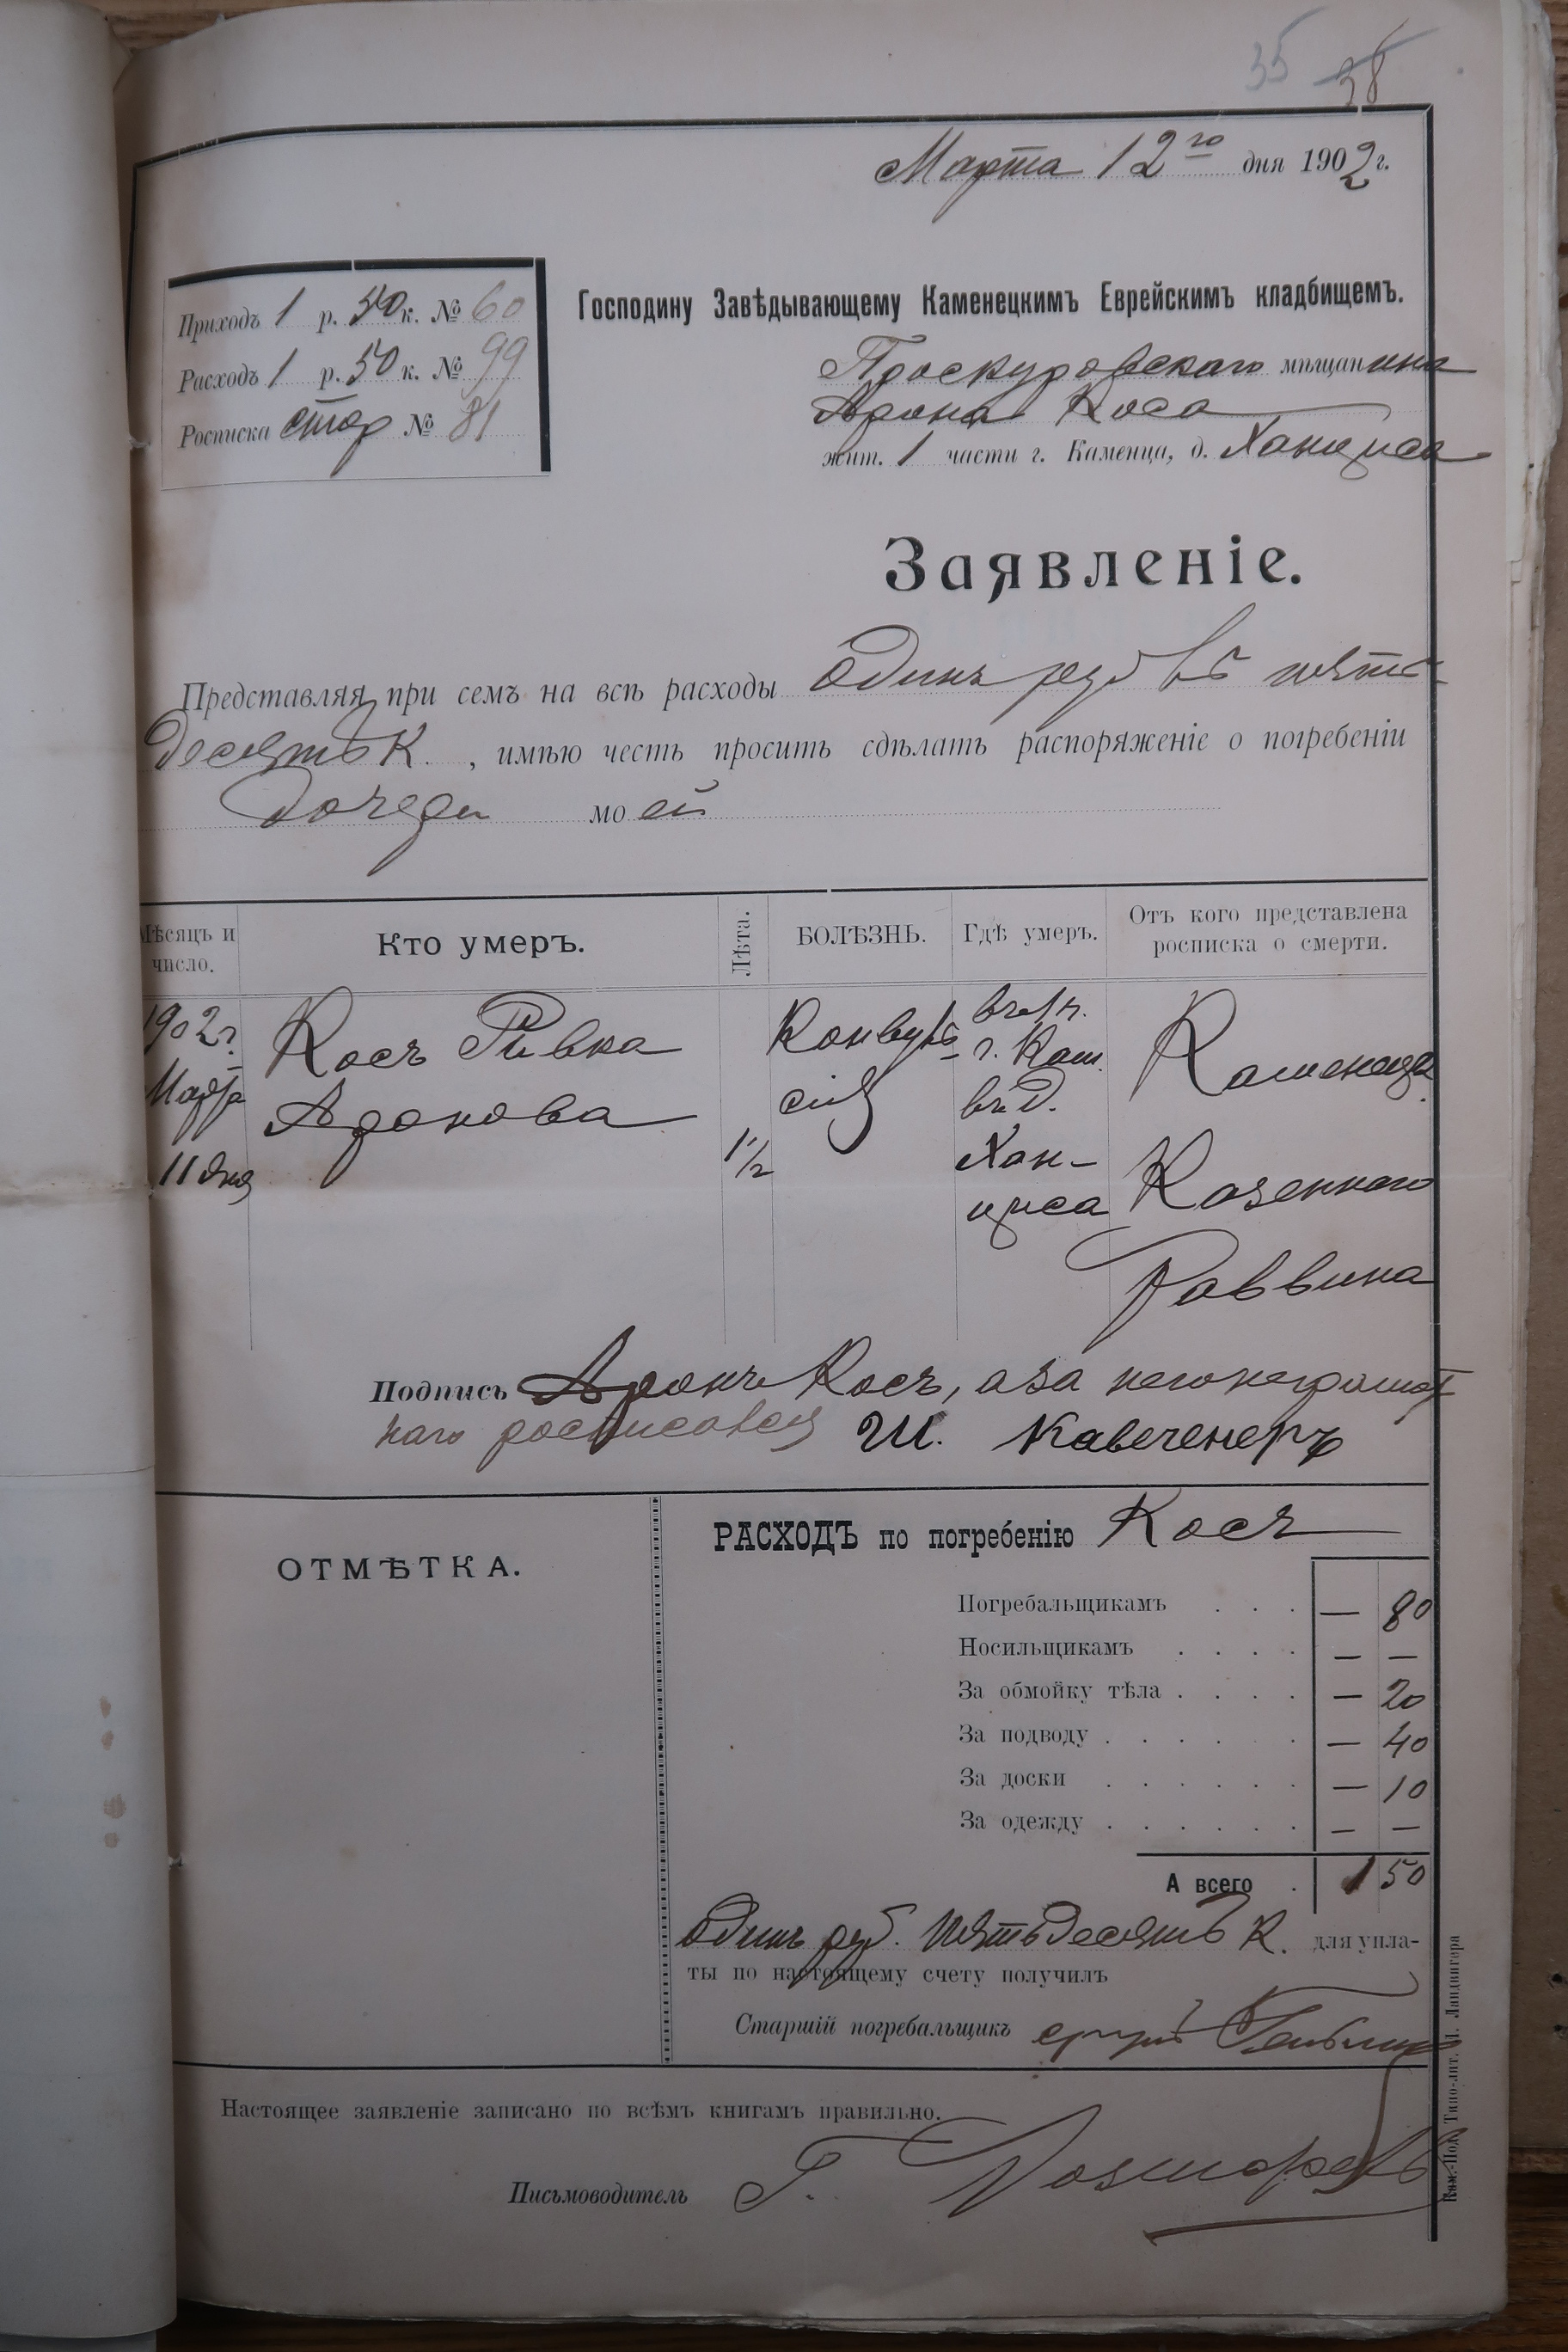 35 38
Марта 12го дня 1902 г.
Приходъ 1 р. 50 к. № 60
Расходъ 1 р. 50 к. № 99
Росписка стор № 81
Господину Завѣдывающему Каменецкимъ Еврейскимъ кладбищемъ.
Проскуровскаго мѣщанина
Арона Коса
жит. 1 части г. Каменца, д. Ханциса
Заявленіе.
Представляя при семъ на всѣ расходы одинъ руб пять-
десятъ к. , имѣю честь просить сдѣлать распоряженіе о погребеніи
дочери моей
Мѣсяцъ и число. Кто умеръ. Лѣта. БОЛѢЗНЬ. Гдѣ умеръ. Отъ кого представлена росписка о смерти.
1902 г. Косъ Ривка Конвуль- въ 1 ч. Каменецк.
Марта Аронова сія г. Кам. въ д.
11 дня 1½ Хан- Казеннаго
циса
Раввина
Подпись Аронъ Косъ, а за него неграмот
наго росписался Ш. Кавеченеръ
ОТМѢТКА.
РАСХОДЪ по погребенію Косъ
Погребальщикамъ . . . — 80
Носильщикамъ . . . . — —
За обмойку тѣла . . . . — 20
За подводу . . . . . . — 40
За доски . . . . . . — 10
За одежду . . . . . . — —
А всего . 1 50
Одинъ руб. пятьдесятъ к. для упла-
ты по настоящему счету получилъ
Старшій погребальщикъ
Настоящее заявленіе записано по всѣмъ книгамъ правильно.
Письмоводитель Г.
Кам.-Под. Типо-лит. Л. Ландвигера